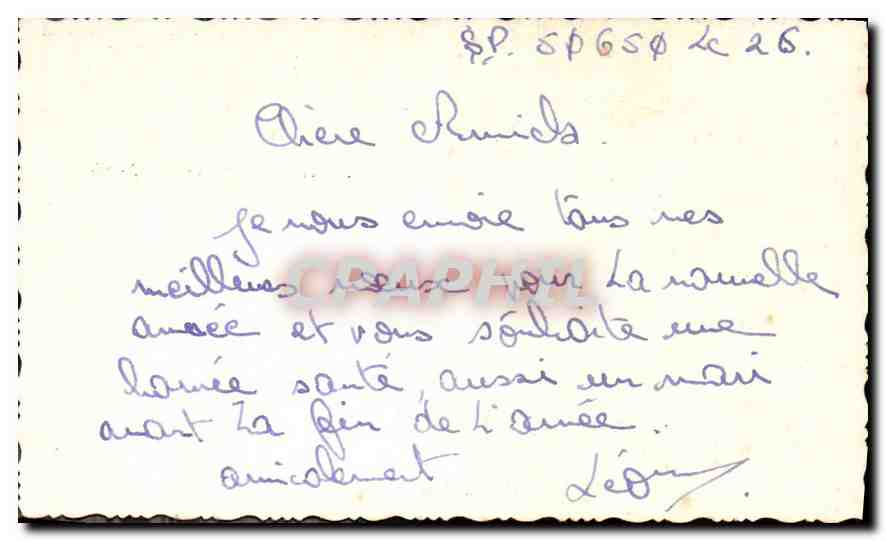 SP. 50650 Le 26.
Chère
Je vous envoie tous mes
meilleurs voeux pour La nouvelle
année et vous souhaite une
bonnée santé, aussi un mari
avant La fin de L'année.
amicalement Léon
CPAPHIL